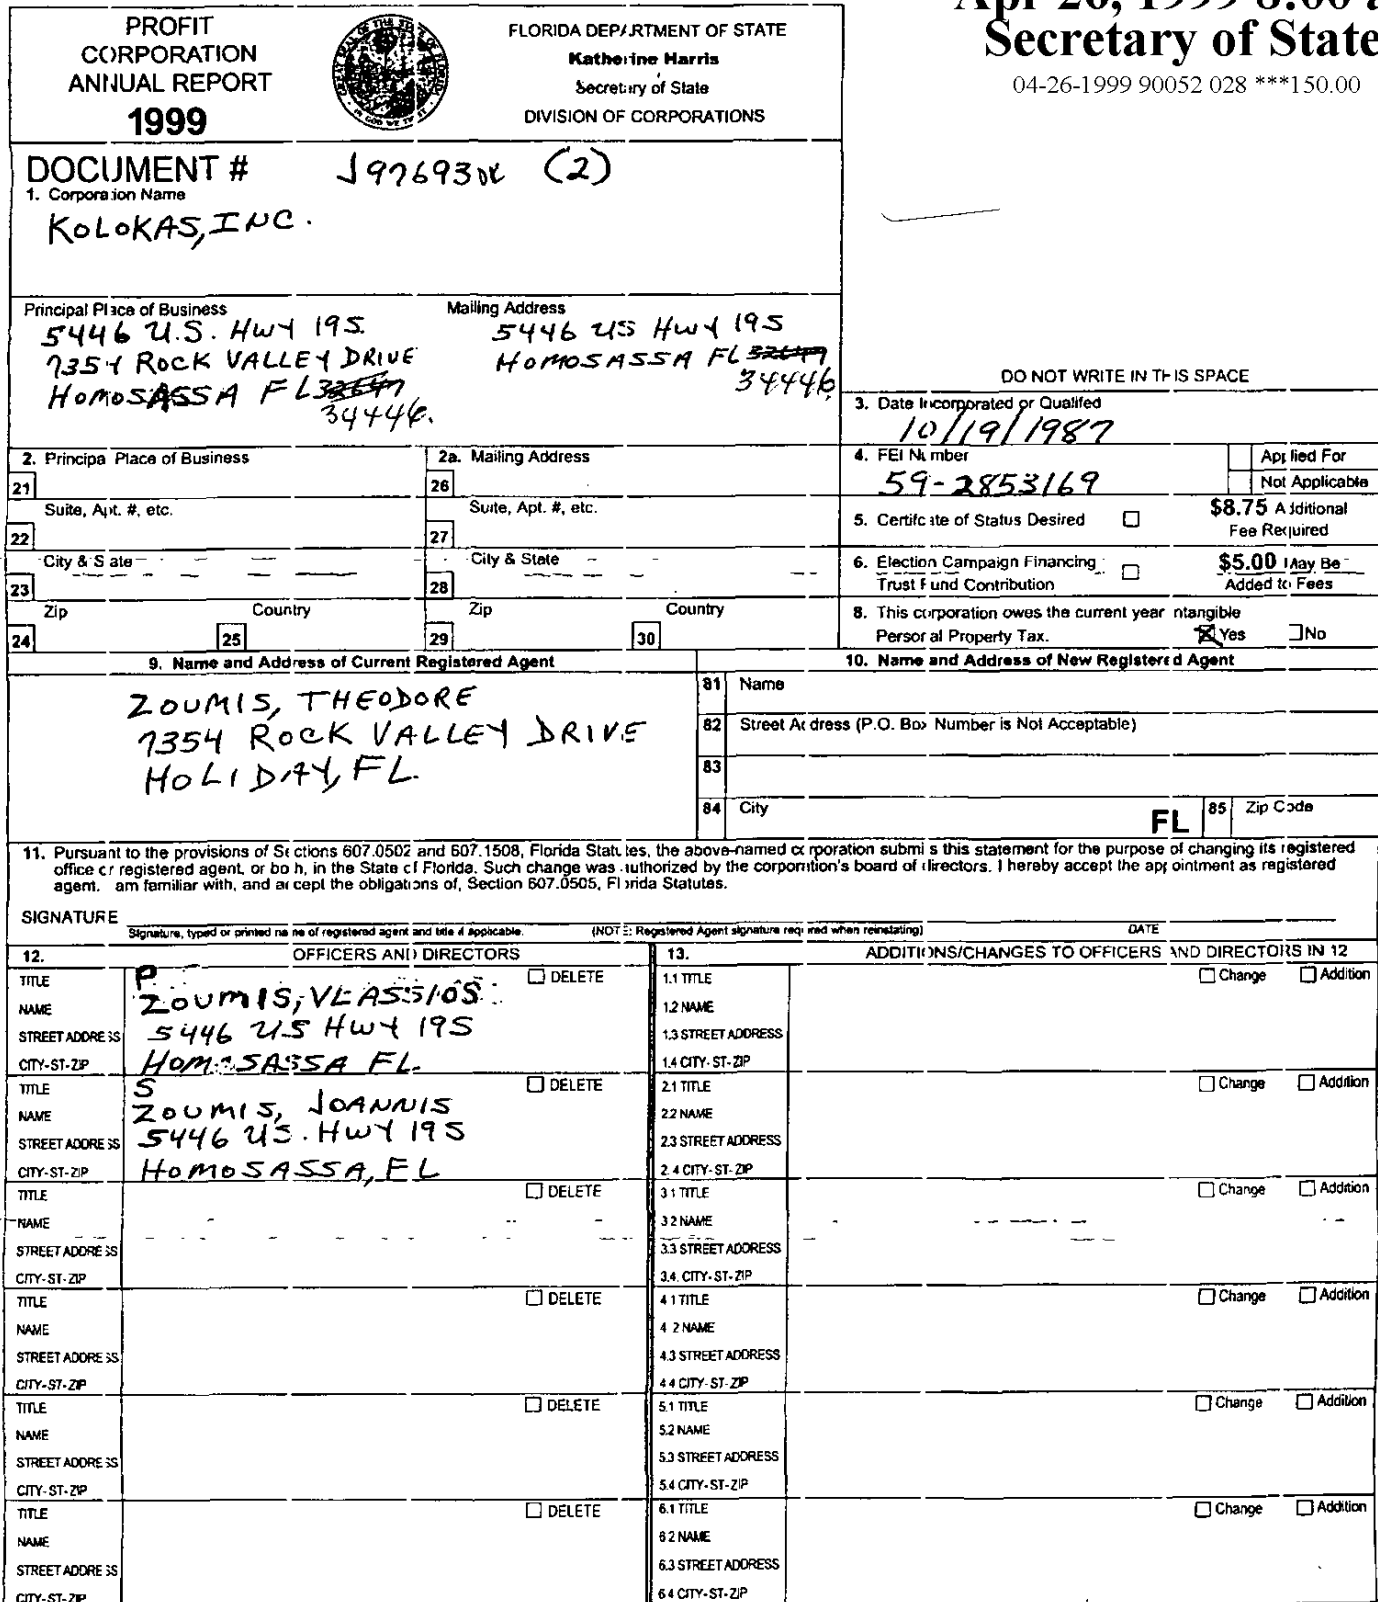 PROFIT
CORPORATION
ANNUAL REPORT
1999
FLORIDA DEPARTMENT OF STATE
Katherine Harris
Secretary of State
DIVISION OF CORPORATIONS
Secretary of State
04-26-1999 90052 028 ***150.00
DOCUMENT # J97693 (2)
1. Corporation Name
KOLOKAS, INC.
Principal Place of Business
5446 U.S. HWY 19S.
7354 ROCK VALLEY DRIVE
HOMOSASSA FL
34446.
Mailing Address
5446 US HWY 19S
HOMOSASSA FL
34446
DO NOT WRITE IN THIS SPACE
3. Date Incorporated or Qualifed
10/19/1987
2. Principal Place of Business
21
Suite, Apt. #, etc.
22
City & State
23
Zip
Country
24
25
2a. Mailing Address
26
Suite, Apt. #, etc.
27
City & State
28
Zip
Country
29
30
4. FEI Number
59-2853169
Applied For
Not Applicable
5. Certifcate of Status Desired
$8.75 Additional
Fee Required
6. Election Campaign Financing
Trust Fund Contribution
$5.00 May Be
Added to Fees
8. This corporation owes the current year Intangible
Personal Property Tax.
Yes
No
9. Name and Address of Current Registered Agent
ZOUMIS, THEODORE
7354 ROCK VALLEY DRIVE
HOLIDAY, FL.
10. Name and Address of New Registered Agent
81 Name
82 Street Address (P.O. Box Number is Not Acceptable)
83
84 City
FL
85 Zip Code
11. Pursuant to the provisions of Sections 607.0502 and 607.1508, Florida Statutes, the above-named corporation submits this statement for the purpose of changing its registered
office or registered agent, or both, in the State of Florida. Such change was authorized by the corporation's board of directors. I hereby accept the appointment as registered
agent. I am familiar with, and accept the obligations of, Section 607.0505, Florida Statutes.
SIGNATURE
Signature, typed or printed name of registered agent and title if applicable.
(NOTE: Registered Agent signature required when reinstating)
DATE
12. OFFICERS AND DIRECTORS
TITLE P DELETE
NAME ZOUMIS, VLASSIOS
STREET ADDRESS 5446 US HWY 19S
CITY-ST-ZIP HOMOSASSA FL.
TITLE S DELETE
NAME ZOUMIS, JOANNIS
STREET ADDRESS 5446 US. HWY 19S
CITY-ST-ZIP HOMOSASSA, FL
TITLE DELETE
NAME
STREET ADDRESS
CITY-ST-ZIP
TITLE DELETE
NAME
STREET ADDRESS
CITY-ST-ZIP
TITLE DELETE
NAME
STREET ADDRESS
CITY-ST-ZIP
TITLE DELETE
NAME
STREET ADDRESS
CITY-ST-ZIP
13. ADDITIONS/CHANGES TO OFFICERS AND DIRECTORS IN 12
1.1 TITLE Change Addition
1.2 NAME
1.3 STREET ADDRESS
1.4 CITY-ST-ZIP
2.1 TITLE Change Addition
2.2 NAME
2.3 STREET ADDRESS
2.4 CITY-ST-ZIP
3.1 TITLE Change Addition
3.2 NAME
3.3 STREET ADDRESS
3.4. CITY-ST-ZIP
4.1 TITLE Change Addition
4.2 NAME
4.3 STREET ADDRESS
4.4 CITY-ST-ZIP
5.1 TITLE Change Addition
5.2 NAME
5.3 STREET ADDRESS
5.4 CITY-ST-ZIP
6.1 TITLE Change Addition
6.2 NAME
6.3 STREET ADDRESS
6.4 CITY-ST-ZIP